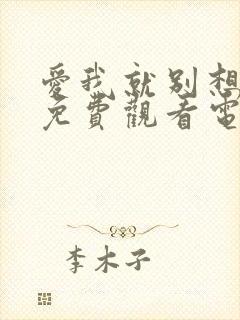 愛我就別想
免費觀看電
李木子